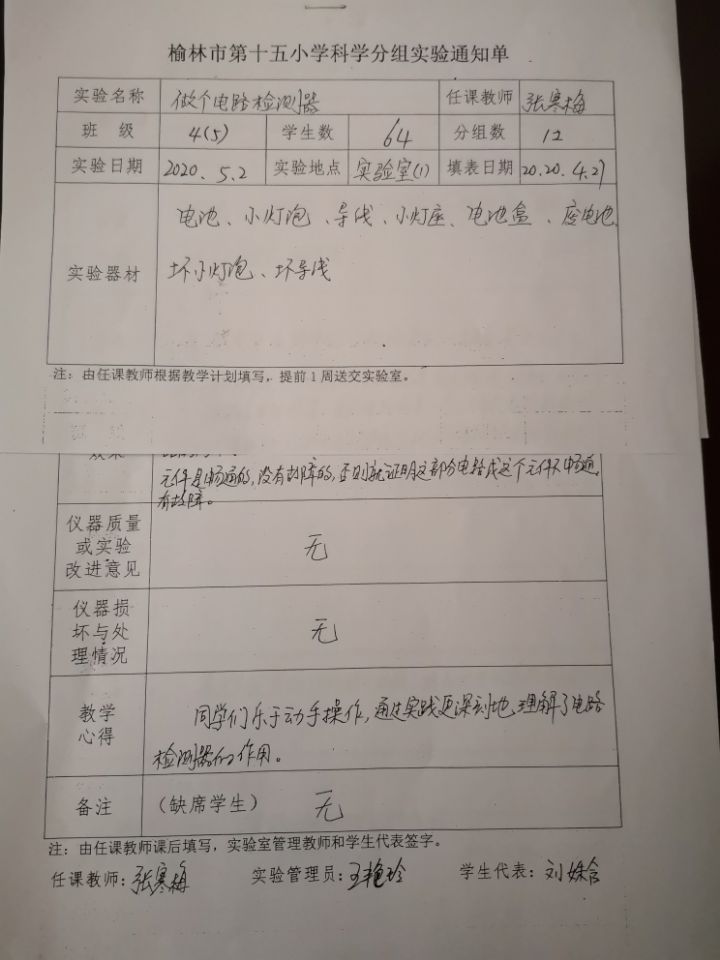 榆林市第十五小学科学分组实验通知单
实验名称 做个电路检测器 任课教师 张寒梅
班 级 4(5) 学生数 64 分组数 12
实验日期 2020.5.2 实验地点 实验室(1) 填表日期 20.20.4.27
电池、小灯泡、导线、小灯座、电池盒、废电池、
实验器材 坏小灯泡、坏导线
注：由任课教师根据教学计划填写，提前1周送交实验室。
元件是畅通的,没有故障的,否则就证明这部分电路或这个元件不畅通,
有故障。
仪器质量
或实验 无
改进意见
仪器损
坏与处 无
理情况
教学 同学们乐于动手操作,通过实践更深刻地理解了电路
心得 检测器的作用。
备注 （缺席学生） 无
注：由任课教师课后填写，实验室管理教师和学生代表签字。
任课教师：张寒梅 实验管理员：王艳玲 学生代表：刘姝含